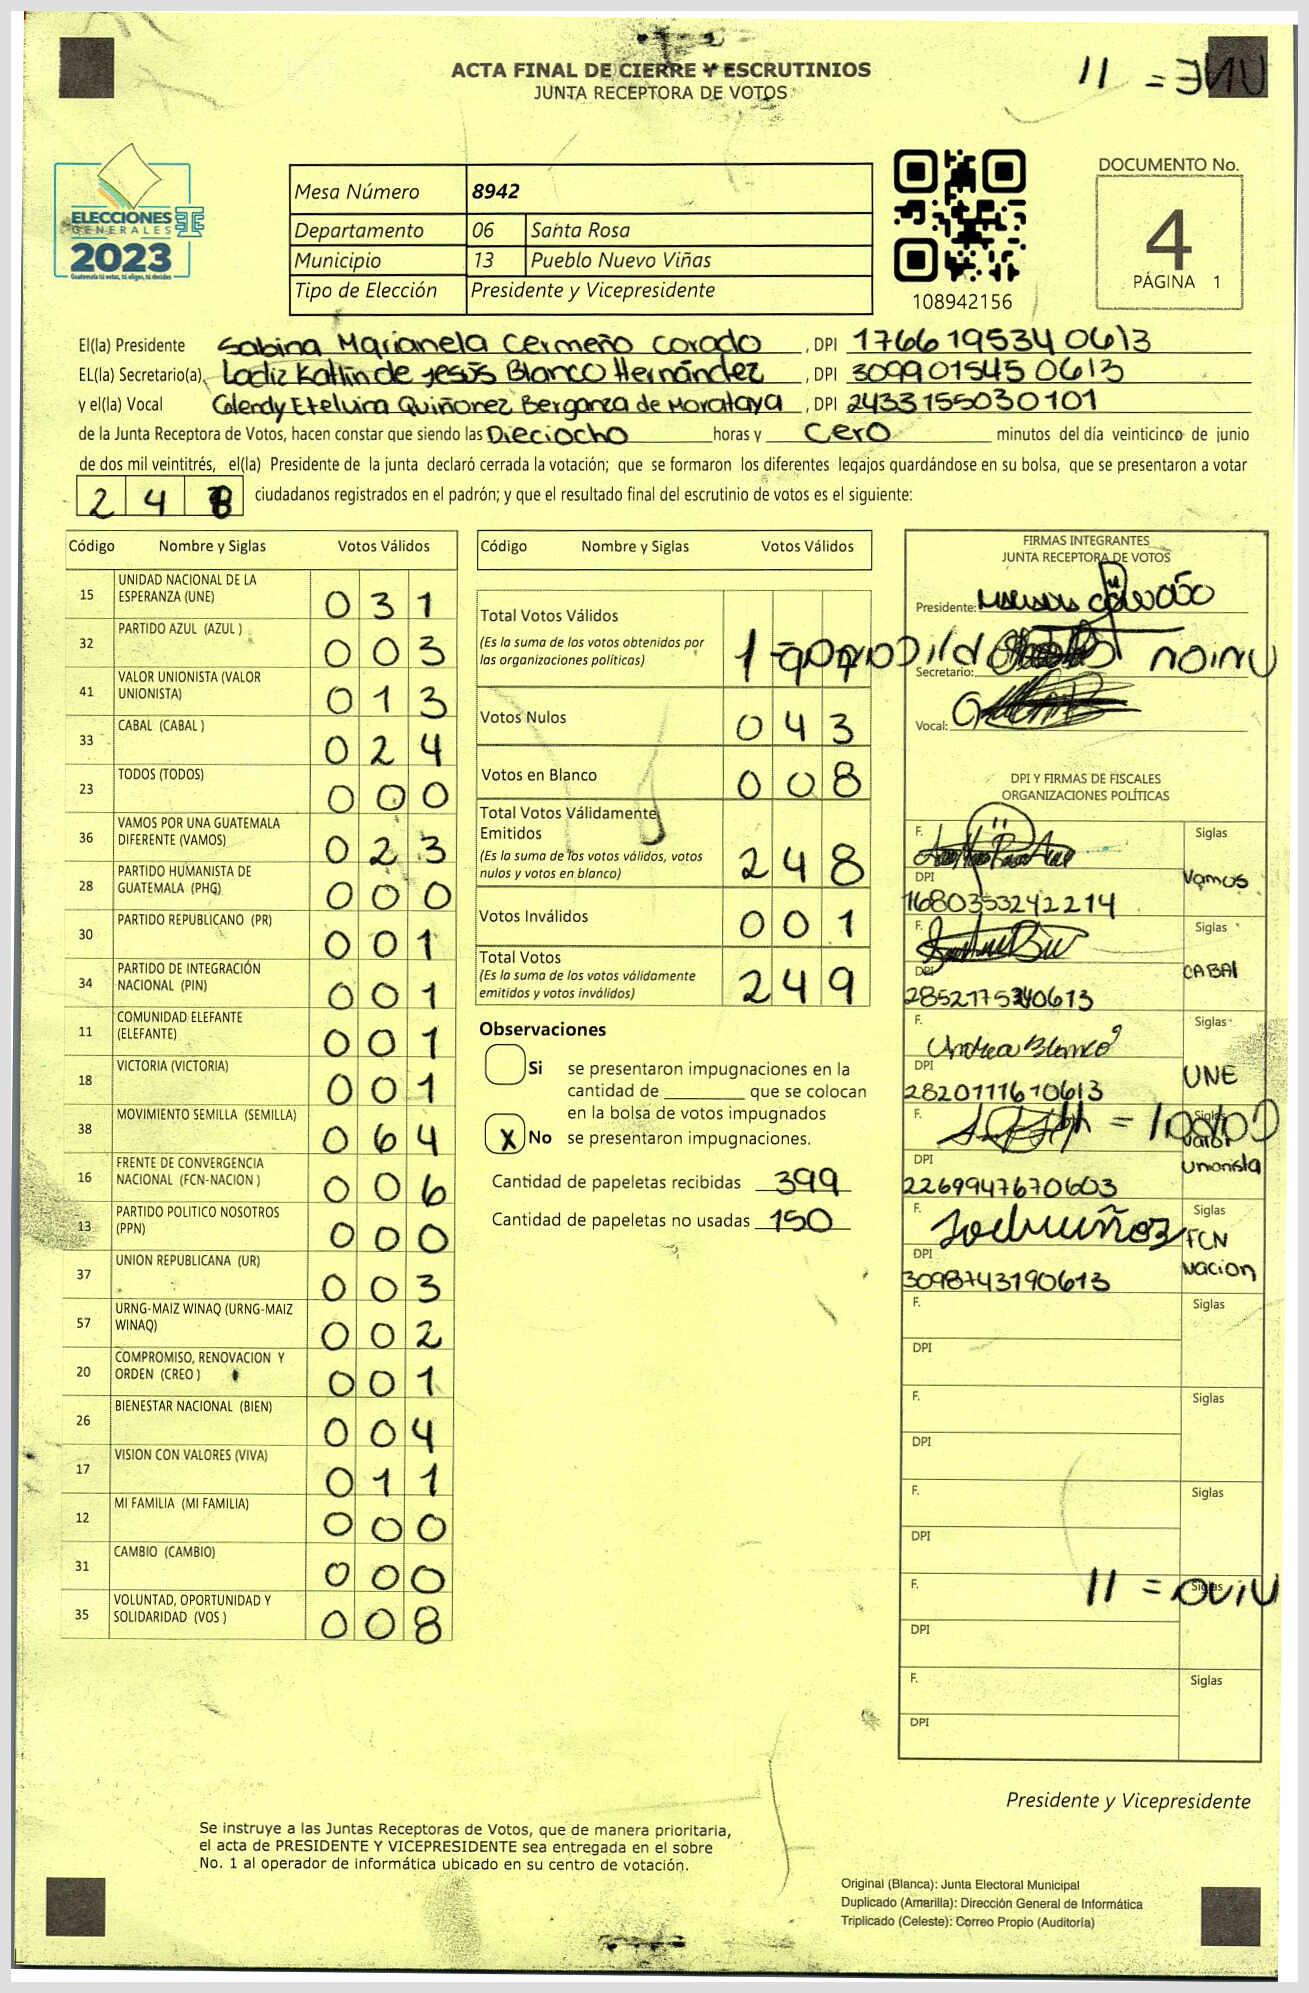 ACTA FINAL DE CIERRE Y ESCRUTINIOS
JUNTA RECEPTORA DE VOTOS
11 = UNE
ELECCIONES
GENERALES
2023
Guatemala tú votas, tú eliges, tú decides
Mesa Número 8942
Departamento 06 Santa Rosa
Municipio 13 Pueblo Nuevo Viñas
Tipo de Elección Presidente y Vicepresidente
108942156
DOCUMENTO No.
4
PÁGINA 1
El(la) Presidente Sabina Marianela Cermeño Corado, DPI 1766195340613
EL(la) Secretario(a), Ladiz Katlin de Jesús Blanco Hernández, DPI 3099015450613
y el(la) Vocal Colendy Etelvina Quiñonez Berganza de Morataya, DPI 2433155030101
de la Junta Receptora de Votos, hacen constar que siendo las Dieciocho horas y cero minutos del día veinticinco de junio
de dos mil veintitrés, el(la) Presidente de la junta declaró cerrada la votación; que se formaron los diferentes legajos guardándose en su bolsa, que se presentaron a votar
248 ciudadanos registrados en el padrón; y que el resultado final del escrutinio de votos es el siguiente:
Código Nombre y Siglas Votos Válidos
15 UNIDAD NACIONAL DE LA ESPERANZA (UNE) 031
32 PARTIDO AZUL (AZUL ) 003
41 VALOR UNIONISTA (VALOR UNIONISTA) 013
33 CABAL (CABAL ) 024
23 TODOS (TODOS) 000
36 VAMOS POR UNA GUATEMALA DIFERENTE (VAMOS) 023
28 PARTIDO HUMANISTA DE GUATEMALA (PHG) 000
30 PARTIDO REPUBLICANO (PR) 001
34 PARTIDO DE INTEGRACIÓN NACIONAL (PIN) 001
11 COMUNIDAD ELEFANTE (ELEFANTE) 001
18 VICTORIA (VICTORIA) 001
38 MOVIMIENTO SEMILLA (SEMILLA) 064
16 FRENTE DE CONVERGENCIA NACIONAL (FCN-NACION ) 006
13 PARTIDO POLITICO NOSOTROS (PPN) 000
37 UNION REPUBLICANA (UR) 003
57 URNG-MAIZ WINAQ (URNG-MAIZ WINAQ) 002
20 COMPROMISO, RENOVACION Y ORDEN (CREO ) 001
26 BIENESTAR NACIONAL (BIEN) 004
17 VISION CON VALORES (VIVA) 011
12 MI FAMILIA (MI FAMILIA) 000
31 CAMBIO (CAMBIO) 000
35 VOLUNTAD, OPORTUNIDAD Y SOLIDARIDAD (VOS ) 008
Código Nombre y Siglas Votos Válidos
Total Votos Válidos
(Es la suma de los votos obtenidos por
las organizaciones políticas)
Votos Nulos 043
Votos en Blanco 008
Total Votos Válidamente
Emitidos
(Es la suma de los votos válidos, votos
nulos y votos en blanco) 248
Votos Inválidos 001
Total Votos
(Es la suma de los votos válidamente
emitidos y votos inválidos) 249
Observaciones
Si se presentaron impugnaciones en la
cantidad de que se colocan
en la bolsa de votos impugnados
X No se presentaron impugnaciones.
Cantidad de papeletas recibidas 399
Cantidad de papeletas no usadas 150
FIRMAS INTEGRANTES
JUNTA RECEPTORA DE VOTOS
Presidente:
Secretario:
Vocal:
DPI Y FIRMAS DE FISCALES
ORGANIZACIONES POLÍTICAS
F. Siglas
Vamos
DPI
1680353242214
F. Siglas
CABAl
DPI
2852175340613
F. Andrea Blanco Siglas
UNE
DPI
2820111670613
F. Siglas
Valor
Unionista
DPI
2269947670603
F. Siglas
FCN
Nacion
DPI
3098743190613
F. Siglas
DPI
F. Siglas
DPI
F. Siglas
DPI
F. Siglas
11 =
DPI
F. Siglas
DPI
Presidente y Vicepresidente
Se instruye a las Juntas Receptoras de Votos, que de manera prioritaria,
el acta de PRESIDENTE Y VICEPRESIDENTE sea entregada en el sobre
No. 1 al operador de informática ubicado en su centro de votación.
Original (Blanca): Junta Electoral Municipal
Duplicado (Amarilla): Dirección General de Informática
Triplicado (Celeste): Correo Propio (Auditoría)